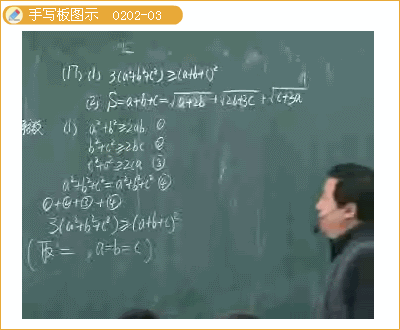 手写板图示 0202-03
(17) (1) 3(a²+b²+c²)≥(a+b+c)²
(2) S=a+b+c=√a+2b+√2b+3c+√c+3a
(1) a²+b²≥2ab ①
b²+c²≥2bc ②
c²+a²≥2ca ③
a²+b²+c²=a²+b²+c² ④
①+②+③+④
3(a²+b²+c²)≥(a+b+c)²
(取= , a=b=c)